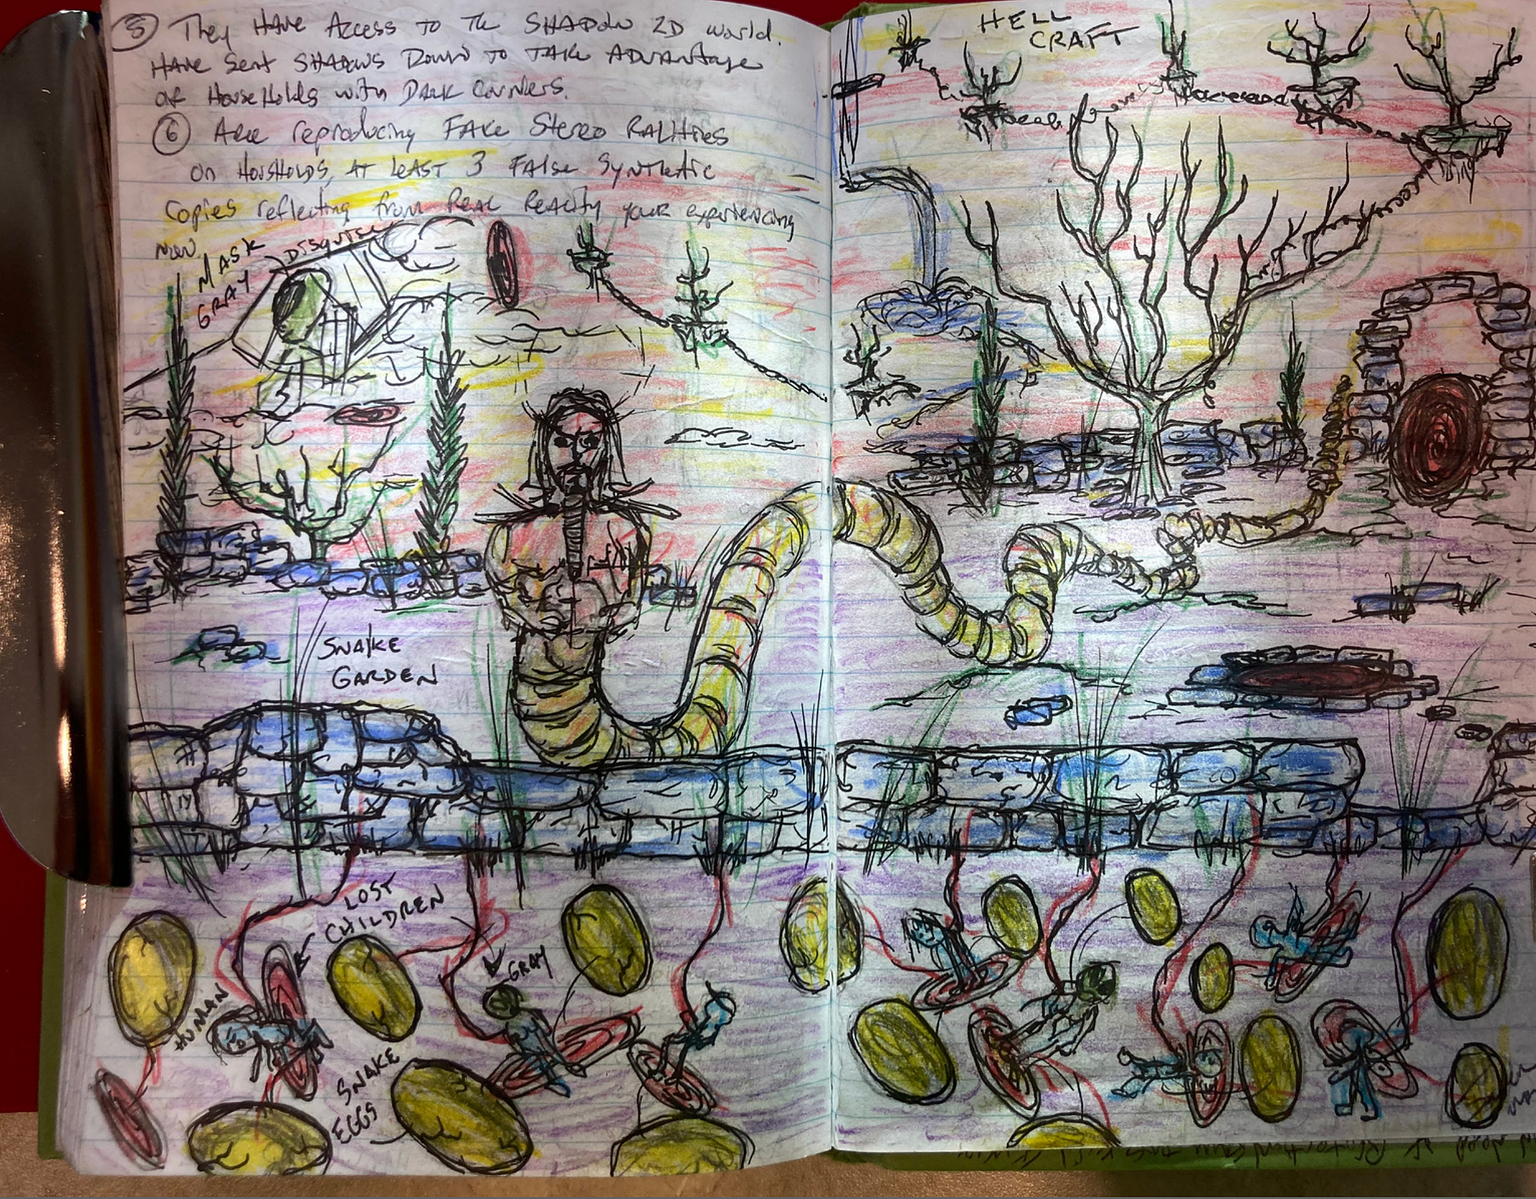 ⑤ They Have Access to The SHADOW 2D world.
Have Sent SHADOWS Down to TAKE ADVANTage
of HouseHolds with DARK Corners.
⑥ Are reproducing FAKE Stereo RALITIES
on HousHolds, AT LEAST 3 FAlse Synthetic
Copies reflecting from Real Reality your experiencing
now
MASK DISGUISE
GRAY
HELL
CRAFT
SNAKE
GARDEN
LOST
CHILDREN
GRAY
HUMAN
SNAKE
EGGS